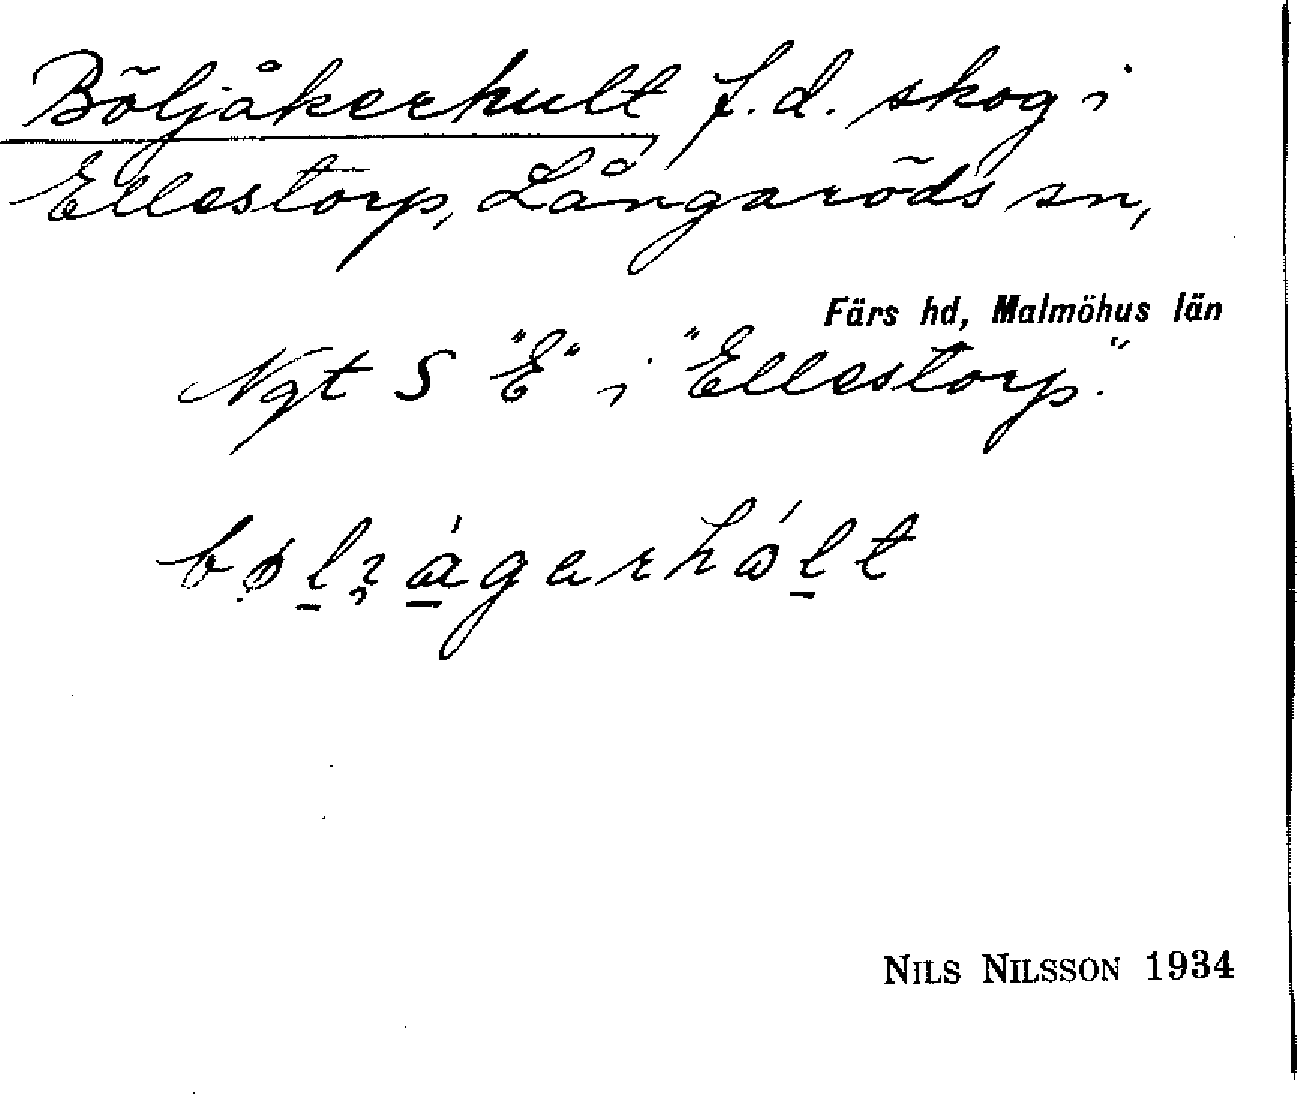 Böljåkerhult, f.d. skog i
Ellestorp, Långaröds sn,
Färs hd, Malmöhus län
Ngt S "E" i "Ellestorp."
NILS NILSSON 1934